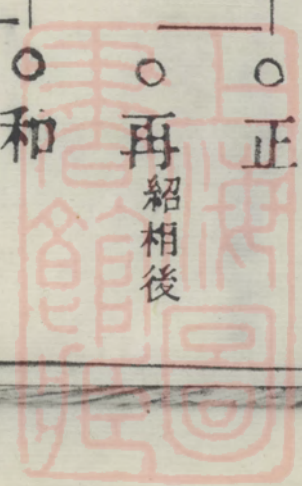 ○正
○再紹相後
○和
上海圖書館藏